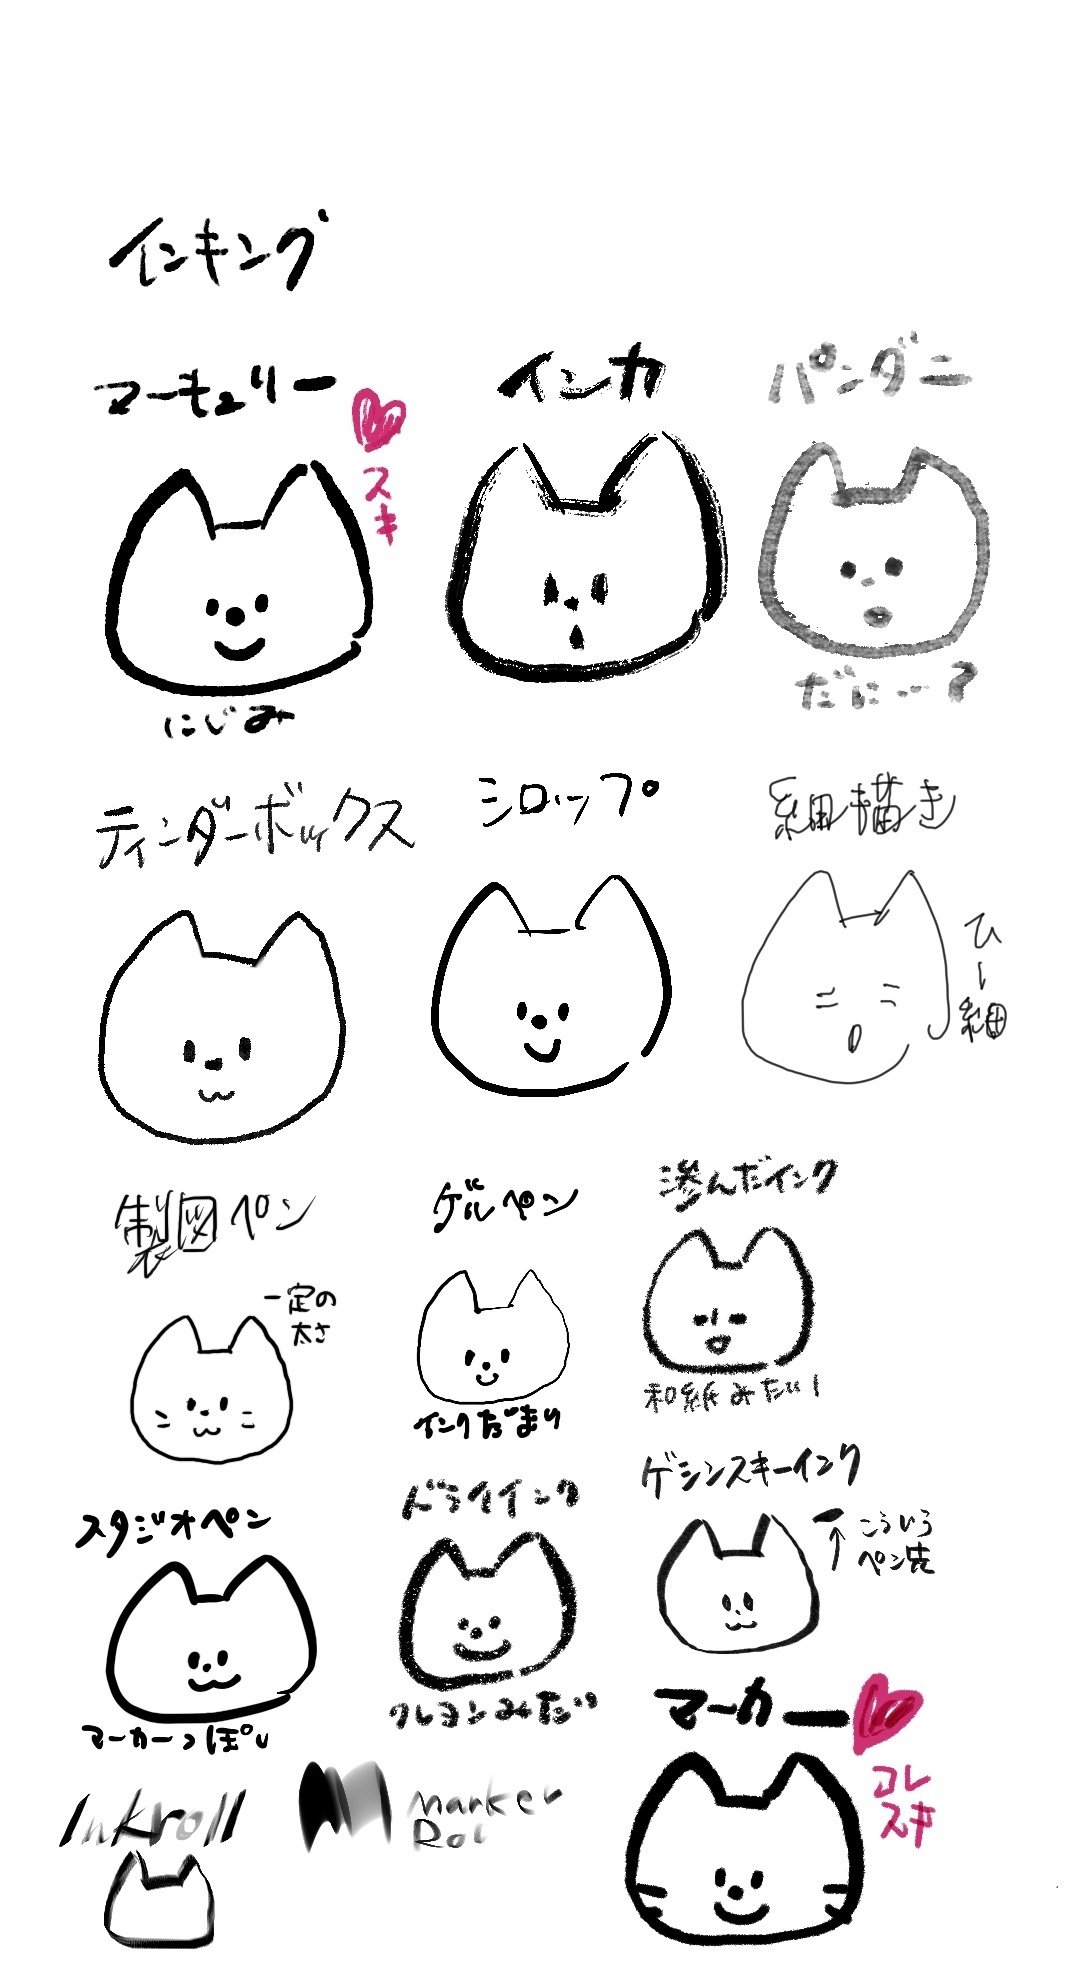 インキング
マーキュリー
スキ
にじみ
インカ
パンダニ
だに…?
ティンダーボックス
シロップ
細描き
ひー細
製図ペン
一定の
太さ
ゲルペン
インクだまり
滲んだインク
和紙みたい
スタジオペン
マーカーっぽい
ドライインク
クレヨンみたい
ゲシンスキーインク
こういう
ペン先
Inkroll
Marker
マーカー
コレ
スキ